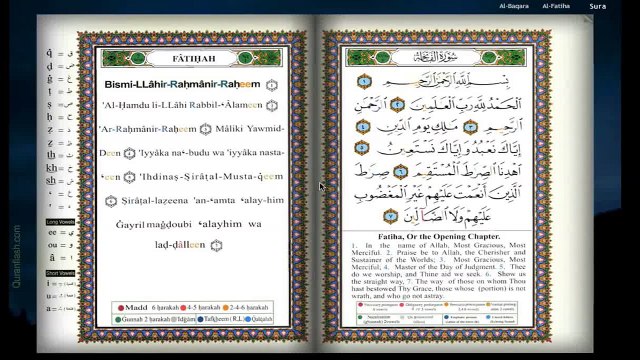 Al-Baqara Al-Fatiha Sura
FÂTIHAH
Bismi-LLâhir-Raḥmânir-Raḥeem
'Al-Ḥamdu li-LLâhi Rabbil-ʻÂlameen
'Ar-Raḥmânir-Raḥeem Mâliki Yawmid-
Deen 'Iyyâka naʻ-budu wa 'iyyâka nasta-
ʻeen 'Ihdinaṣ-Ṣirâṭal-Musta-qeem
Ṣirâṭal-lazeena 'an-ʻamta ʻalay-him
Ġayril maġḍoubi ʻalayhim wa
laḍ-ḍâlleen
Madd 6 ḥarakah 4-5 ḥarakah 2-4-6 ḥarakah
Gunnah 2 ḥarakah Idġâm Tafkheem (R.L) Qalqalah
Long Vowels
ee ي
ou و
â ا
Short Vowels
i
u
a
Quranflash.com
سورة الفاتحة
بِسْمِ اللَّهِ الرَّحْمَٰنِ الرَّحِيمِ ١
الْحَمْدُ لِلَّهِ رَبِّ الْعَالَمِينَ ٢ الرَّحْمَٰنِ
الرَّحِيمِ ٣ مَالِكِ يَوْمِ الدِّينِ ٤
إِيَّاكَ نَعْبُدُ وَإِيَّاكَ نَسْتَعِينُ ٥
اهْدِنَا الصِّرَاطَ الْمُسْتَقِيمَ ٦ صِرَاطَ
الَّذِينَ أَنْعَمْتَ عَلَيْهِمْ غَيْرِ الْمَغْضُوبِ
عَلَيْهِمْ وَلَا الضَّالِّينَ ٧
Fatiha, Or the Opening Chapter.
1. In the name of Allah, Most Gracious, Most
Merciful. 2. Praise be to Allah, the Cherisher and
Sustainer of the Worlds; 3. Most Gracious, Most
Merciful; 4. Master of the Day of Judgment. 5. Thee
do we worship, and Thine aid we seek. 6. Show us
the straight way, 7. The way of those on whom Thou
hast bestowed Thy Grace, those whose (portion) is not
wrath, and who go not astray.